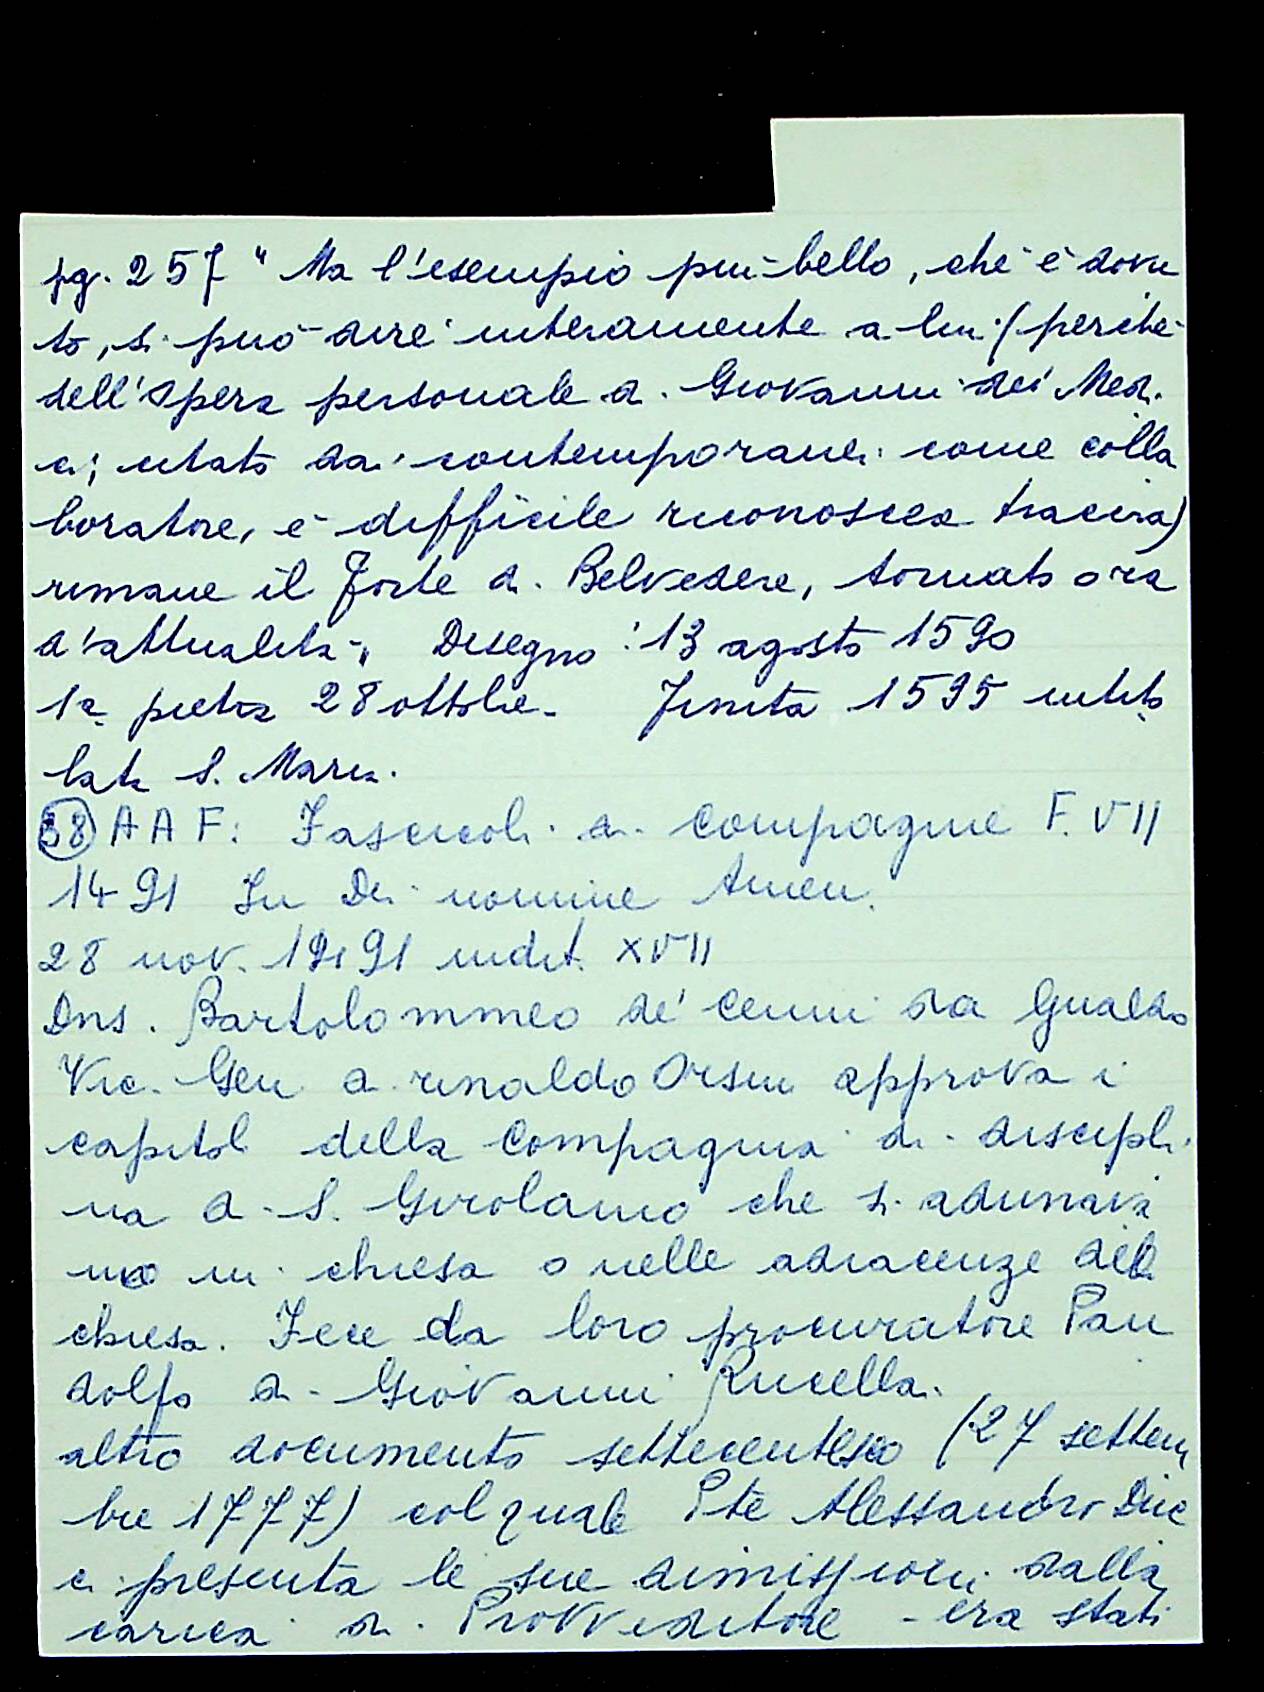 pg. 257 " Ma l'esempio più bello, che è dovu
to, si può dire interamente a lui (perché
dell'opera personale di Giovanni dei Medi
ci, citato dai contemporanei come colla
boratore, è difficile riconoscer traccia)
rimane il Forte di Belvedere, tornato ora
d'attualità", Disegno: 13 agosto 1590
1a pietra 28 ottobre. Finita 1595 intito
lata S. Maria.
58 AAF: Fascicoli di compagnie F. VII
1491 In Dei nomine Amen.
28 nov. 1491 indit. XVII
Dns. Bartolommeo de' Cenni da Gualdo
Vic. Gen di rinaldo Orsini approva i
capitoli della Compagnia di discipli
na di S. Girolamo che si adunava
no in chiesa o nelle adiacenze della
chiesa. Fece da loro procuratore Pan
dolfo di Giovanni Rucellai.
altro documento settecentesco (27 settem
bre 1777) col quale Pte Alessandro Duc
ci presenta le sue dimissioni dalla
carica di Provveditore - era stati